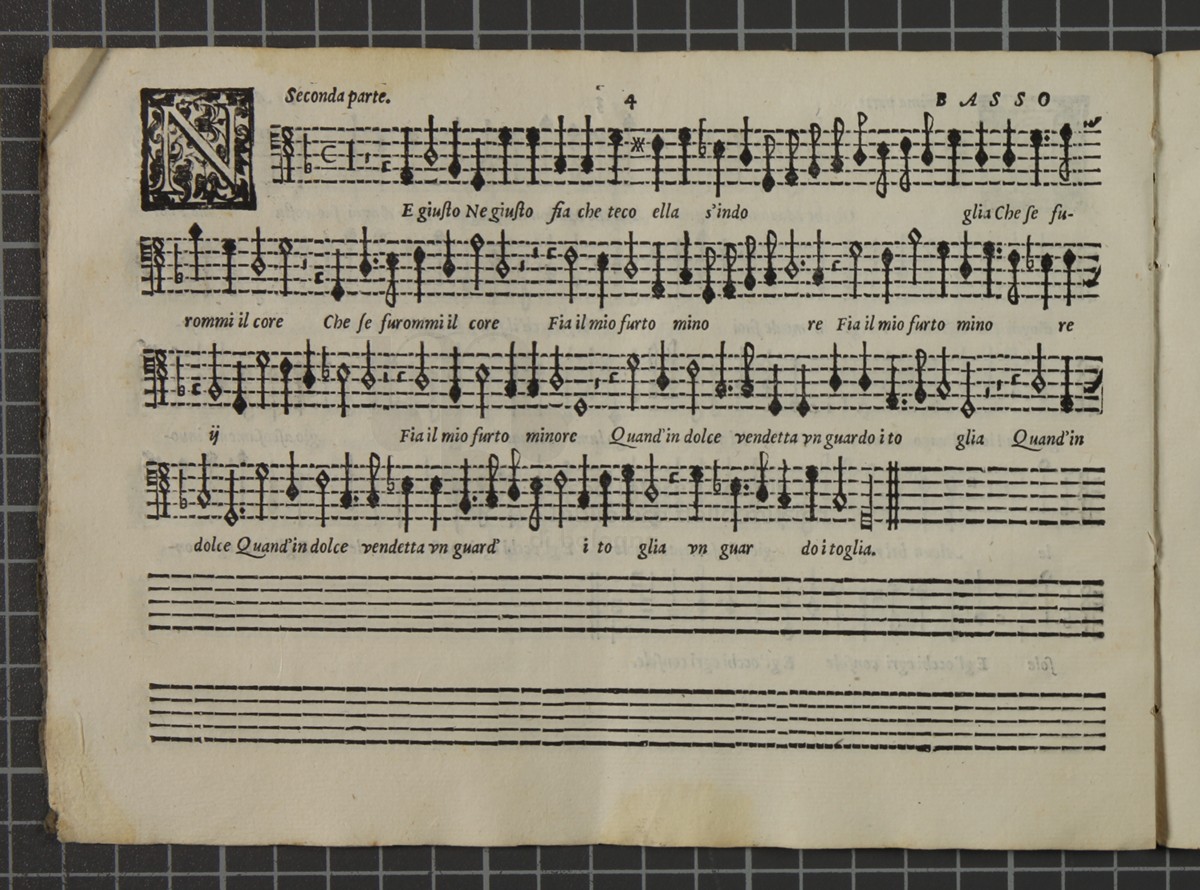 Seconda parte. 4 BASSO
NE giuſto Ne giuſto fia che teco ella s'indo glia Che ſe fu-
rommi il core Che ſe furommi il core Fia il mio furto mino re Fia il mio furto mino re
ij Fia il mio furto minore Quand'in dolce vendetta vn guardo i to glia Quand'in
dolce Quand'in dolce vendetta vn guard' i to glia vn guar do i toglia.